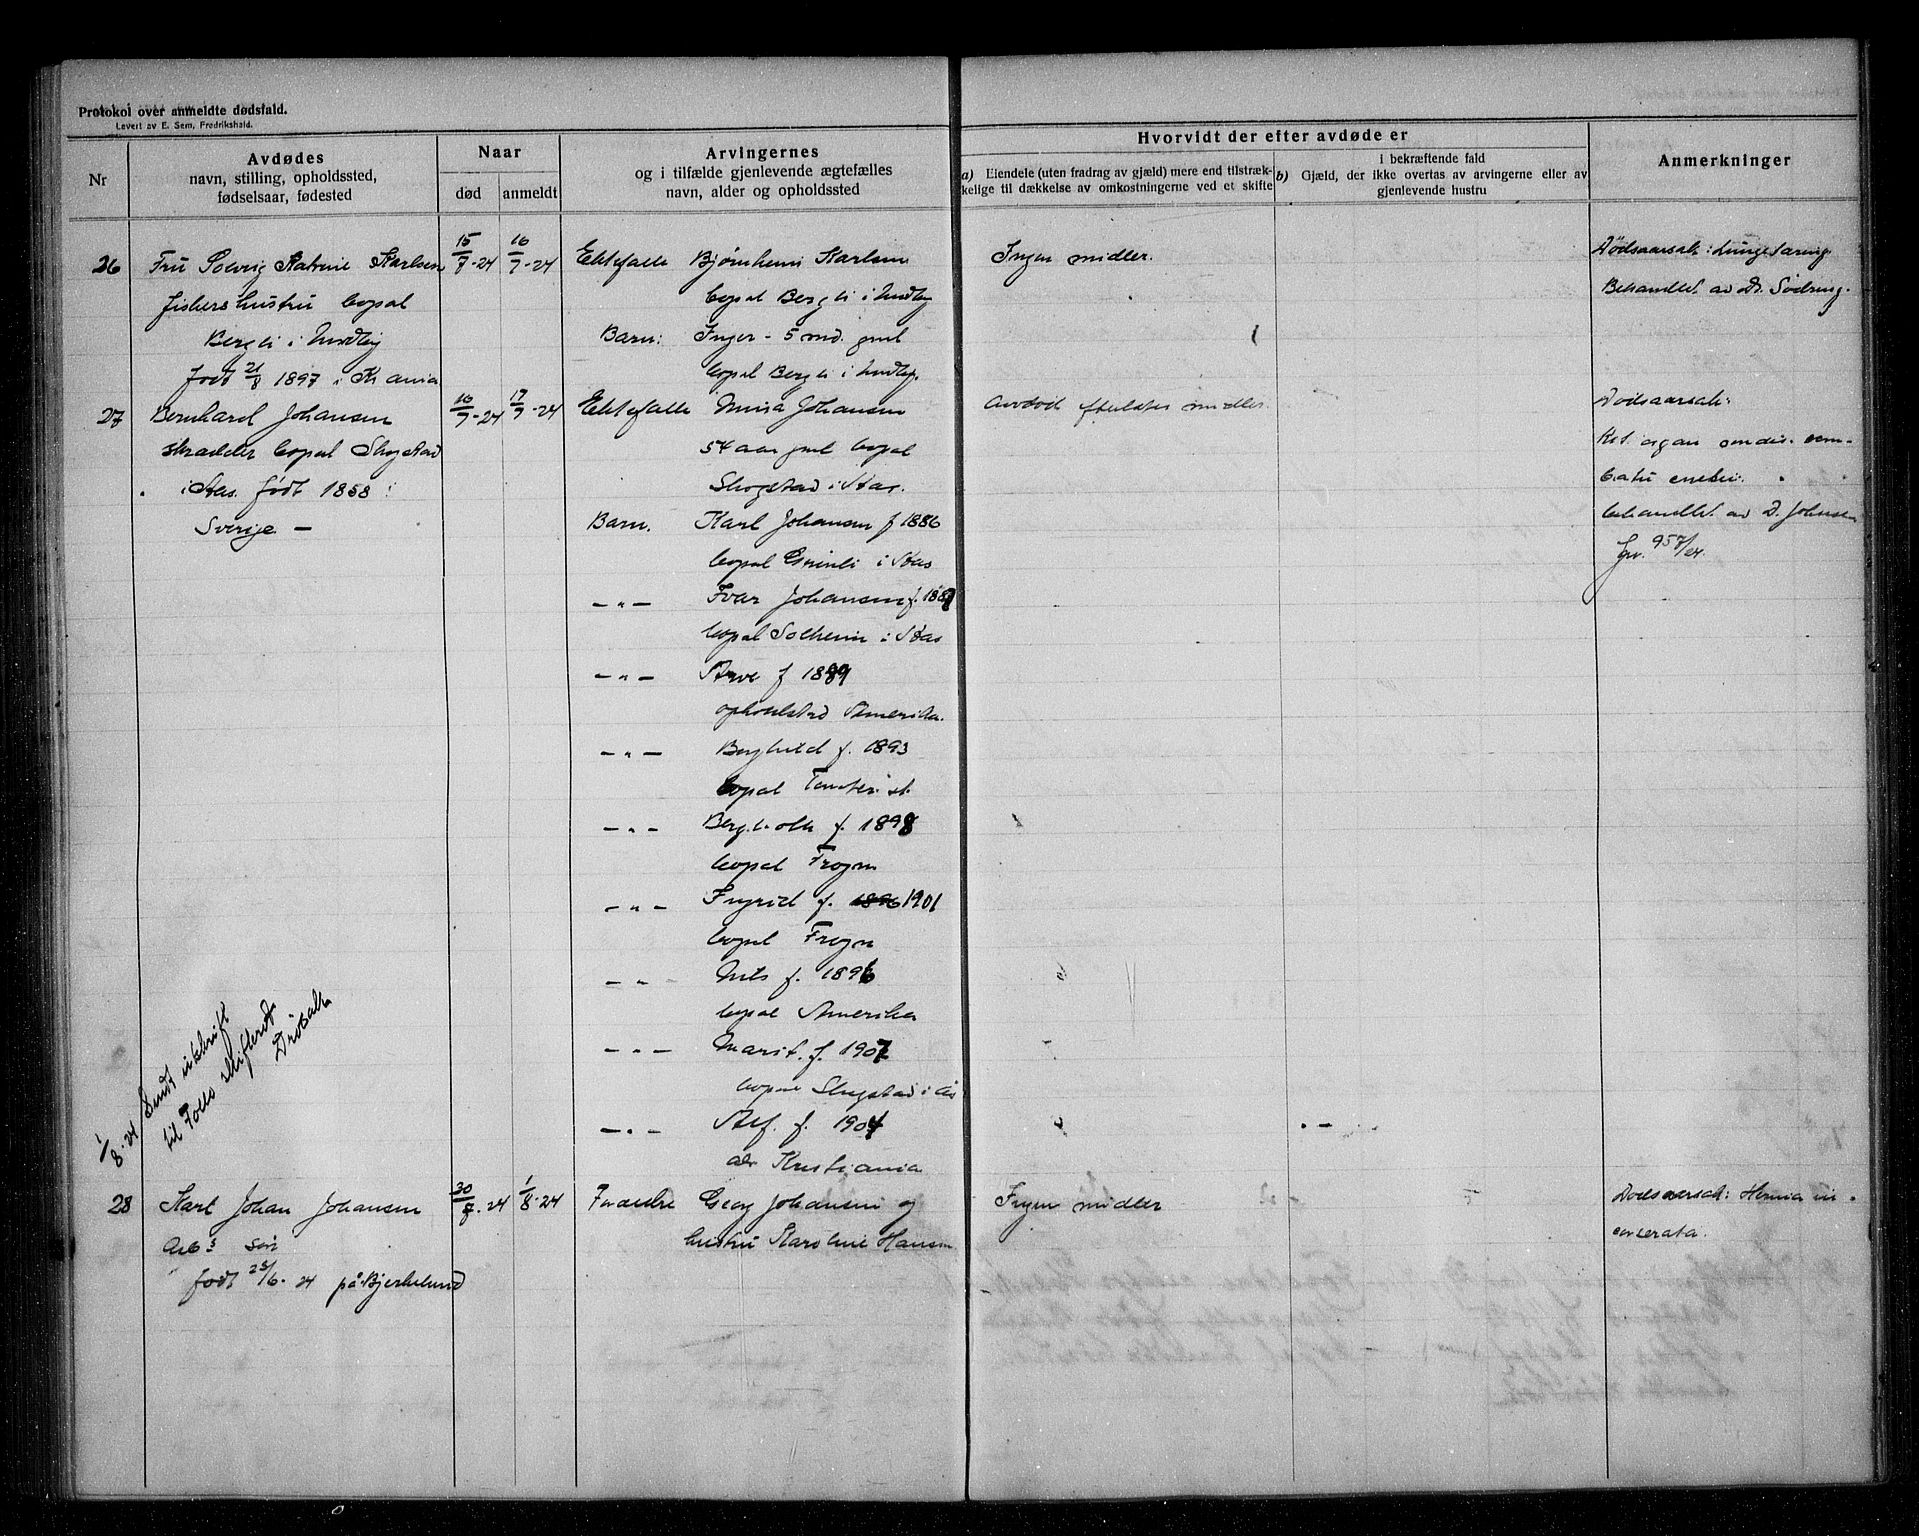 Protokol over anmeldte dødsfald.
Levert av E. Sem, Fredrikshald.
Nr
Avdødes
navn, stilling, opholdssted,
fødselsaar, fødested
Naar
død
anmeldt
Arvingernes
og i tilfælde gjenlevende ægtefælles
navn, alder og opholdssted
Hvorvidt der efter avdøde er
a) Eiendele (uten fradrag av gjæld) mere end tilstræk-
kelige til dækkelse av omkostningerne ved et skifte
i bekræftende fald
b) Gjæld, der ikke overtas av arvingerne eller av
gjenlevende hustru
Anmerkninger
26
Fru Solveig Katrine Karlsen
fiskers hustru bopæl
Bergli i
født 21/8 1897 i Kr.ania
15/7-24
16/7-24
Ektefælle Bjørnheim Karlsen
bopæl Bergli i
Barn: Inger - 5 md. gml
bopæl Bergli i
Ingen midler.
Dødsaarsak: Lungetæring
Behandlet av Dr. Sødring.
27
Bernhard Johansen
skrædder bopæl Skogstad
i Aas. født 1858 i
Sverige —
16/7-24
17/7-24
Ektefælle Johansen
54 aar gml bopæl
Skogstad i Aas.
Barn. Karl Johansen f 1886
bopæl Grinli i Aas
— " — Ivar Johansen f. 1887
bopæl Solheim i Aas
— " — Arve f 1889
opholdsted Amerika.
— " — Borghild f. 1893
bopæl st.
— " — Bergljot f. 1898
bopæl Frogn
— " — Ingrid f. 1896 1901
bopæl Frogn
— " — Nils f. 1896
bopæl Amerika
— " — Marit. f. 1907
bopæl Skogstad i Ås
— " — Alf. f. 1904
adr Kristiania
Avdød efterlater midler.
Dødsaarsak:
behandlet av D. Johnsen
957/24.
1/8-24 Sendt utskrift
til Follo skifterett
Drøbak
28
Karl Johan Johansen
Arb.s søn
født 23/6-24 på Bjerkelund
30/7-24
1/8-24
Forældre Georg Johansen og
hustru Karoline Hansen
Ingen midler
Dødsaarsak: Hernia in-
carcerata.